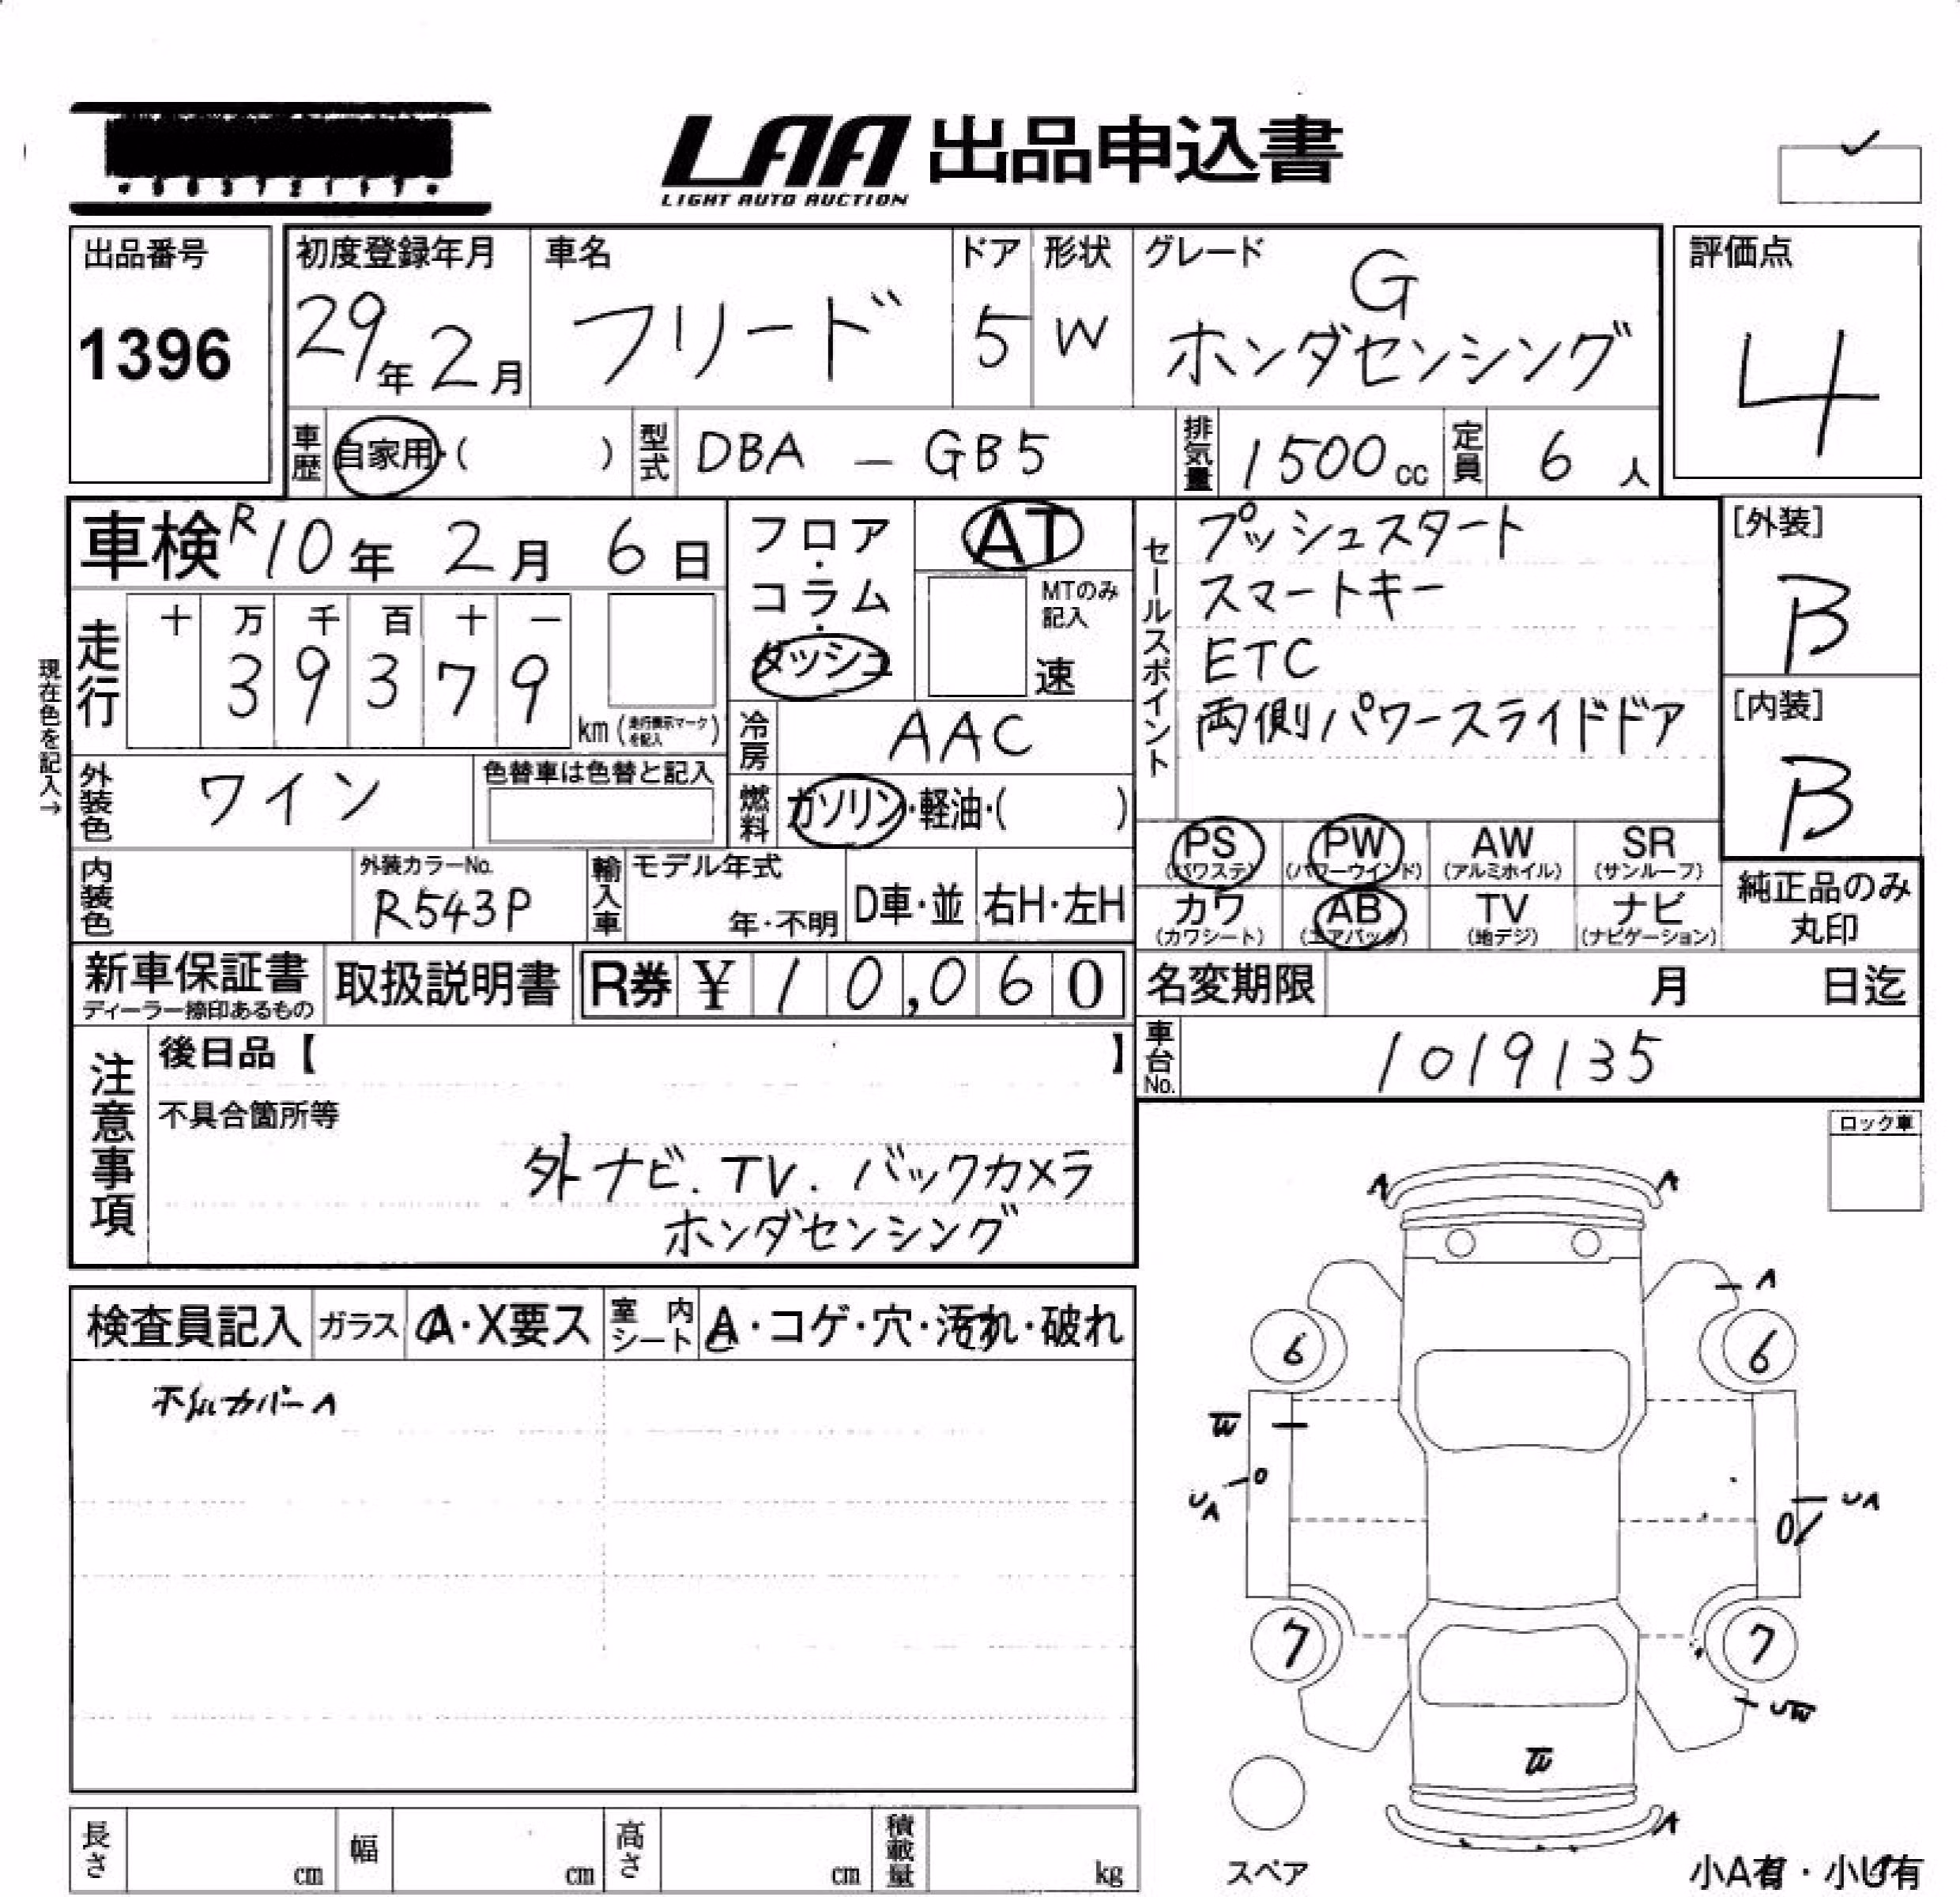 LAA 出品申込書
LIGHT AUTO AUCTION
出品番号
1396
初度登録年月
29年2月
車名
フリード
ドア
5
形状
W
グレード
G
ホンダセンシング
評価点
4
車歴 自家用・( )
型式 DBA - GB5
排気量 1500cc
定員 6人
車検 R10年 2月 6日
走行
十 万 千 百 十 一
3 9 3 7 9
km(走行表示マークを記入)
現在色を記入→
フロア・コラム・ダッシュ
AT
MTのみ記入
速
冷房 AAC
燃料 ガソリン・軽油・( )
外装色 ワイン
色替車は色替と記入
内装色
外装カラーNo.
R543P
輸入車
モデル年式
年・不明
D車・並
右H・左H
セールスポイント
プッシュスタート
スマートキー
ETC
両側パワースライドドア
[外装]
B
[内装]
B
PS (パワステ)
PW (パワーウインド)
AW (アルミホイル)
SR (サンルーフ)
カワ (カワシート)
AB (エアバック)
TV (地デジ)
ナビ (ナビゲーション)
純正品のみ
丸印
新車保証書
ディーラー捺印あるもの
取扱説明書
R券 ¥10,060
名変期限 月 日迄
車台No. 1019135
注意事項
後日品【 】
不具合箇所等
外ナビ.TV.バックカメラ
ホンダセンシング
ロック車
検査員記入
ガラス A・X要ス
室内シート A・コゲ・穴・汚れ・破れ
カバーA
A A
A
6 6
W
UA
UA
7 7
UW
W
A
スペア
小A有・小U有
長さ cm
幅 cm
高さ cm
積載量 kg